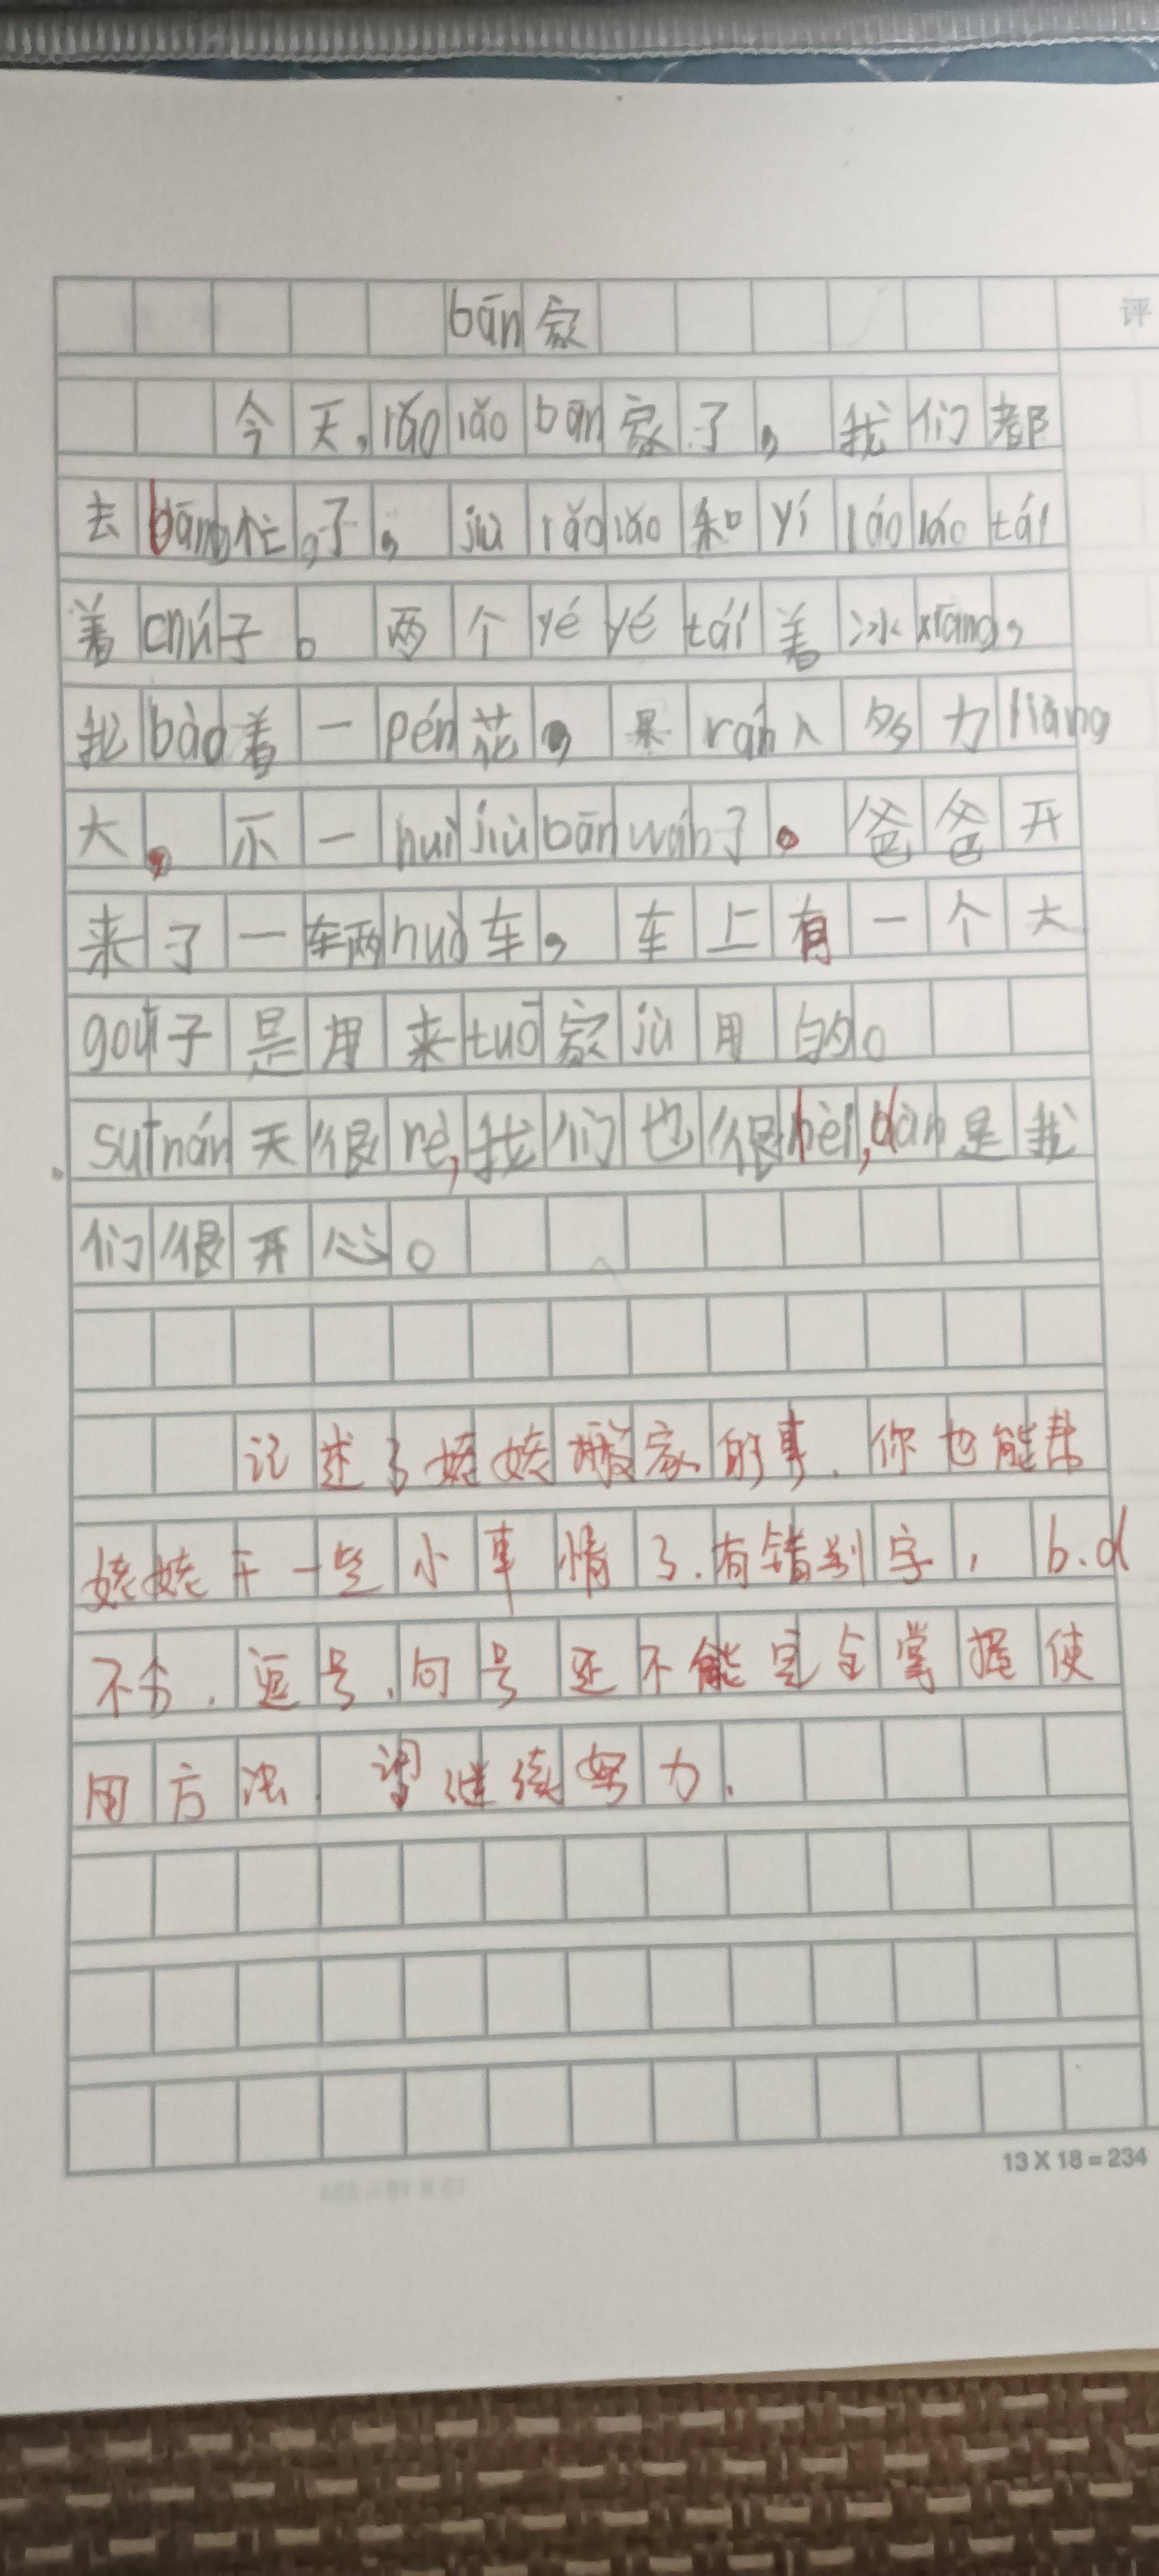 bān家
今天,lǎo lǎo bān家了,我们都
去bāng忙,了,jiù lǎo lǎo和yí láo láo tái
着chú子。两个yé yé tái着冰xiāng,
我bào着一pén花,果rán人多力liàng
大,不一huì jiù bān wán了。爸爸开
来了一辆huò车,车上有一个大
gōu子是用来tuō家jù用的。
suī rán天很rè,我们也很lèi,dàn是我
们很开心。
记述了姥姥搬家的事.你也能帮
姥姥干一些小事情了.有错别字,b.d
不分.逗号.句号还不能完全掌握使
用方法.望继续努力.
13×18=234
评